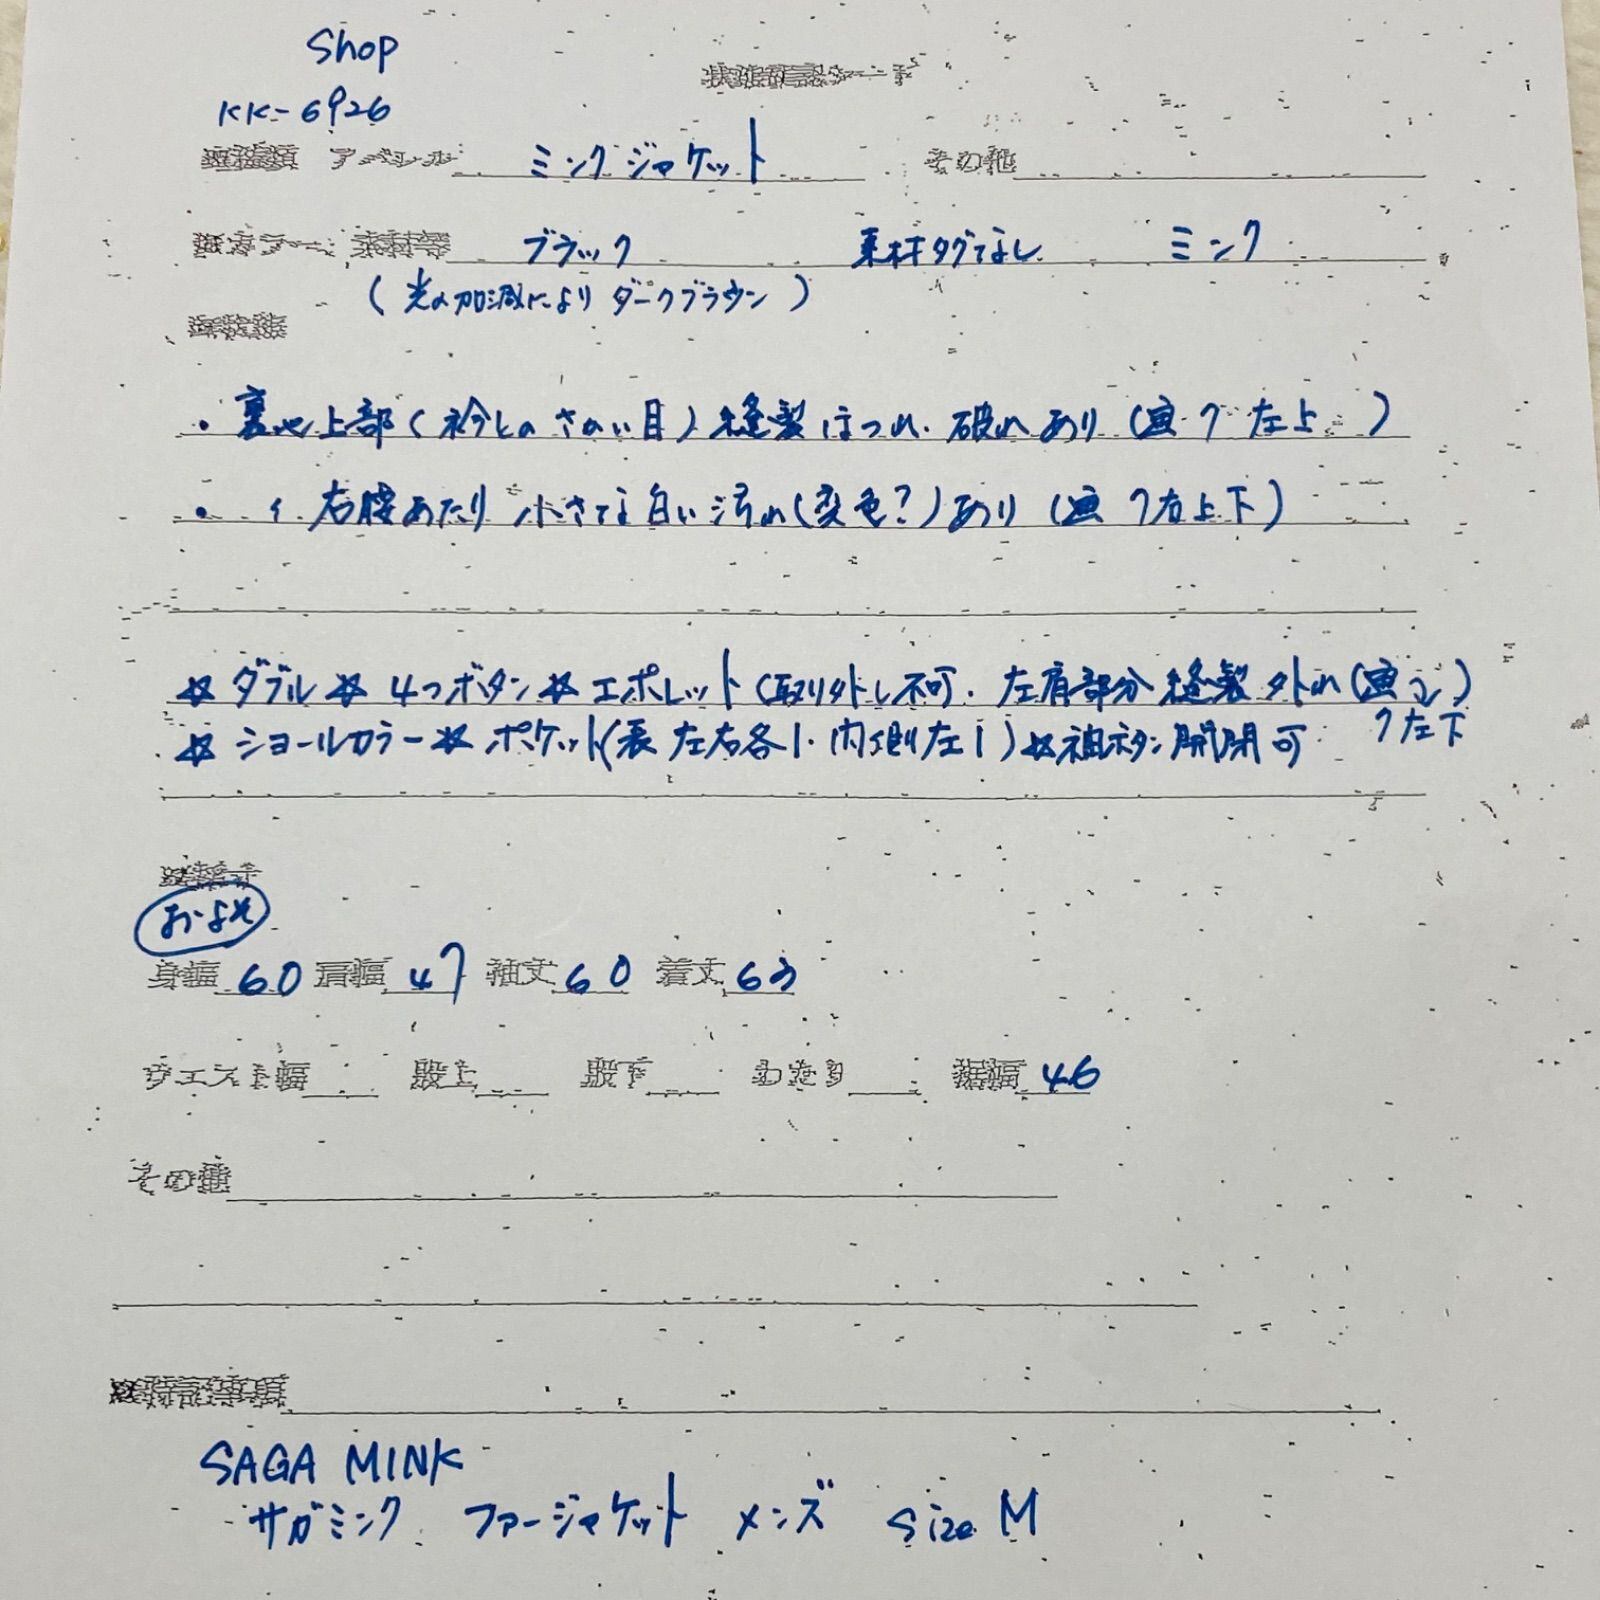 Shop
KK-6926
状態確認シート
アパレル ミンクジャケット その他
カラー 素材等 ブラック 素材タグなし ミンク
(光の加減によりダークブラウン)
状態
・裏地上部(衿とのさかい目)縫製ほつれ・破れあり( 左上 )
・〃 右腰あたり 小さな白い汚れ(変色?)あり( 右上下)
☆ダブル☆4つボタン☆エポレット(取り外し不可・左肩部分縫製外れ( )
☆ショールカラー☆ポケット(表 左右各1・内側左1)☆袖ボタン開閉可 左下
およそ
身幅 60 肩幅 47 袖丈 60 着丈 63
ウエスト幅 股上 股下 わたり 裾幅 46
その他
特記事項
SAGA MINK
サガミンク ファージャケット メンズ size M